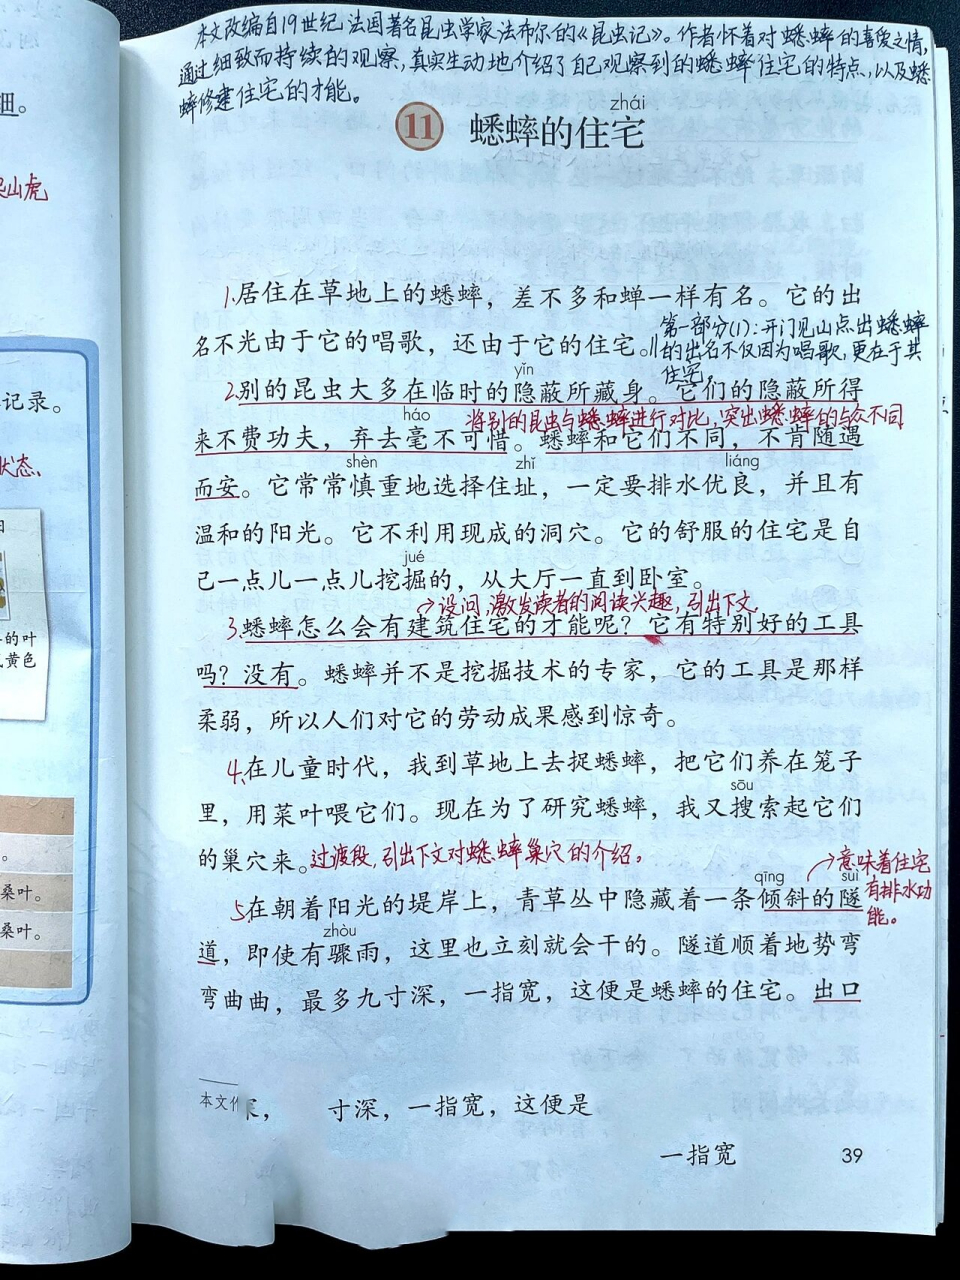 本文改编自19世纪法国著名昆虫学家法布尔的《昆虫记》。作者怀着对蟋蟀的喜爱之情,
通过细致而持续的观察,真实生动地介绍了自己观察到的蟋蟀住宅的特点,以及蟋
蟀修建住宅的才能。
zhái
11 蟋蟀的住宅
1.居住在草地上的蟋蟀，差不多和蝉一样有名。它的出
名不光由于它的唱歌，还由于它的住宅。||
第一部分(1):开门见山点出蟋蟀
的出名不仅因为唱歌,更在于其
住宅。
yǐn
2.别的昆虫大多在临时的隐蔽所藏身。它们的隐蔽所得
将别的昆虫与蟋蟀进行对比,突出蟋蟀的与众不同
háo
来不费功夫，弃去毫不可惜。蟋蟀和它们不同，不肯随遇
shèn zhǐ liáng
而安。它常常慎重地选择住址，一定要排水优良，并且有
温和的阳光。它不利用现成的洞穴。它的舒服的住宅是自
jué
己一点儿一点儿挖掘的，从大厅一直到卧室。
→设问,激发读者的阅读兴趣,引出下文。
3.蟋蟀怎么会有建筑住宅的才能呢？它有特别好的工具
吗？没有。蟋蟀并不是挖掘技术的专家，它的工具是那样
柔弱，所以人们对它的劳动成果感到惊奇。
4.在儿童时代，我到草地上去捉蟋蟀，把它们养在笼子
sōu
里，用菜叶喂它们。现在为了研究蟋蟀，我又搜索起它们
的巢穴来。过渡段,引出下文对蟋蟀巢穴的介绍。
→意味着住宅
有排水功
能。
qīng suì
5.在朝着阳光的堤岸上，青草丛中隐藏着一条倾斜的隧
zhòu
道，即使有骤雨，这里也立刻就会干的。隧道顺着地势弯
弯曲曲，最多九寸深，一指宽，这便是蟋蟀的住宅。出口
本文
寸深，一指宽，这便是
一指宽
39
细。
山虎
记录。
状态、
的叶
黄色
桑叶。
桑叶。